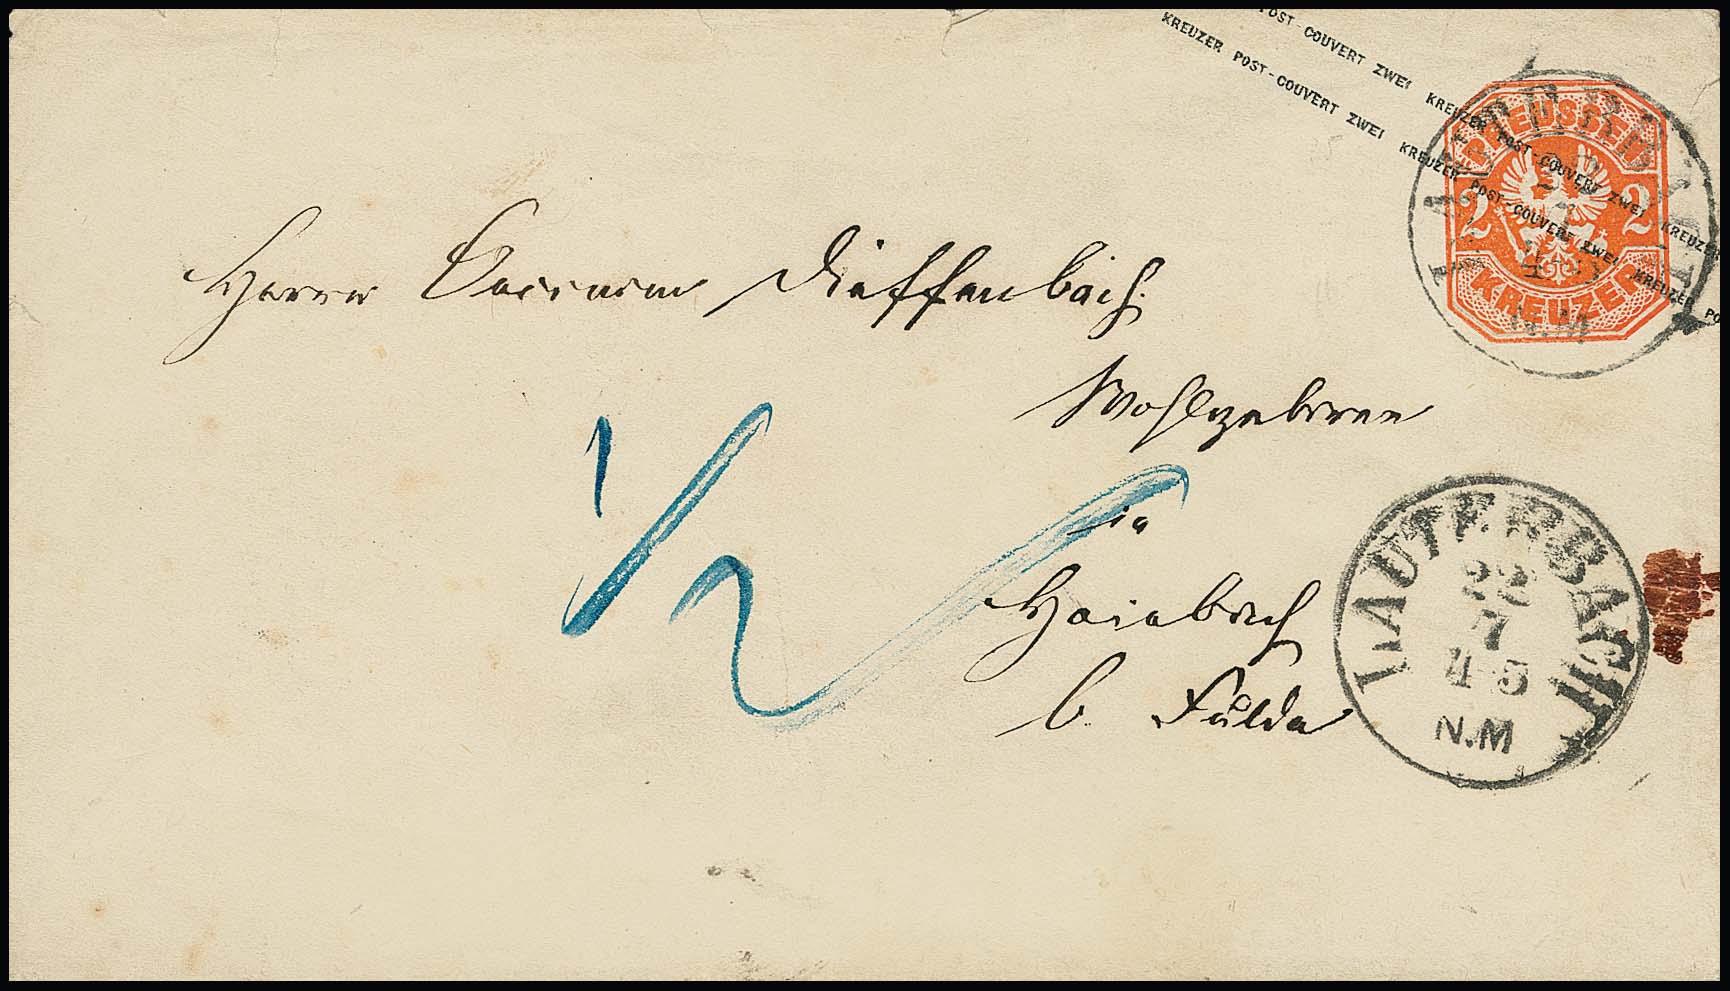 POST-COUVERT ZWEI KREUZER POST-COUVERT ZWEI KREUZER
KREUZER POST-COUVERT ZWEI KREUZER POST-COUVERT ZWEI KREUZER PO
PREUSSEN
2 2
KREUZER
LAUTERBACH
22
7
4-5
N.M
Herrn Dieffenbach
Wohlgeboren
in
Hainbach
b. Fulda
1/2
LAUTERBACH
22
7
4-5
N.M